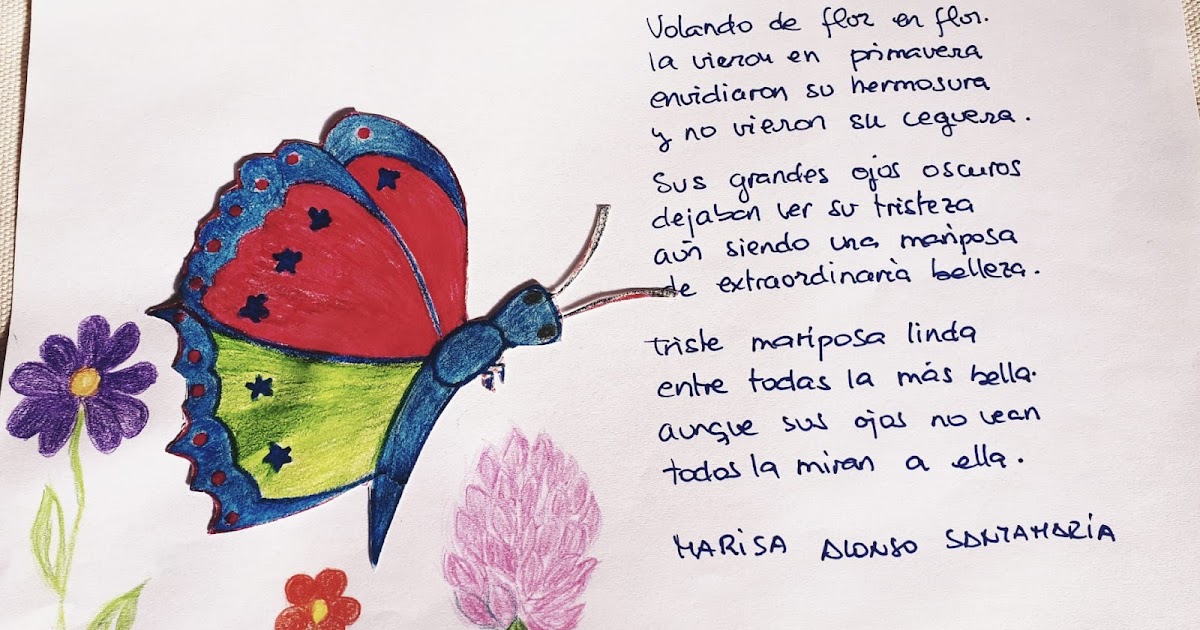 Volando de flor en flor.
la vieron en primavera
envidiaron su hermosura
y no vieron su ceguera.
Sus grandes ojos oscuros
dejaban ver su tristeza
aún siendo una mariposa
de extraordinaria belleza.
triste mariposa linda
entre todas la más bella.
aunque sus ojos no vean
todos la miran a ella.
MARISA ALONSO SANTAMARÍA